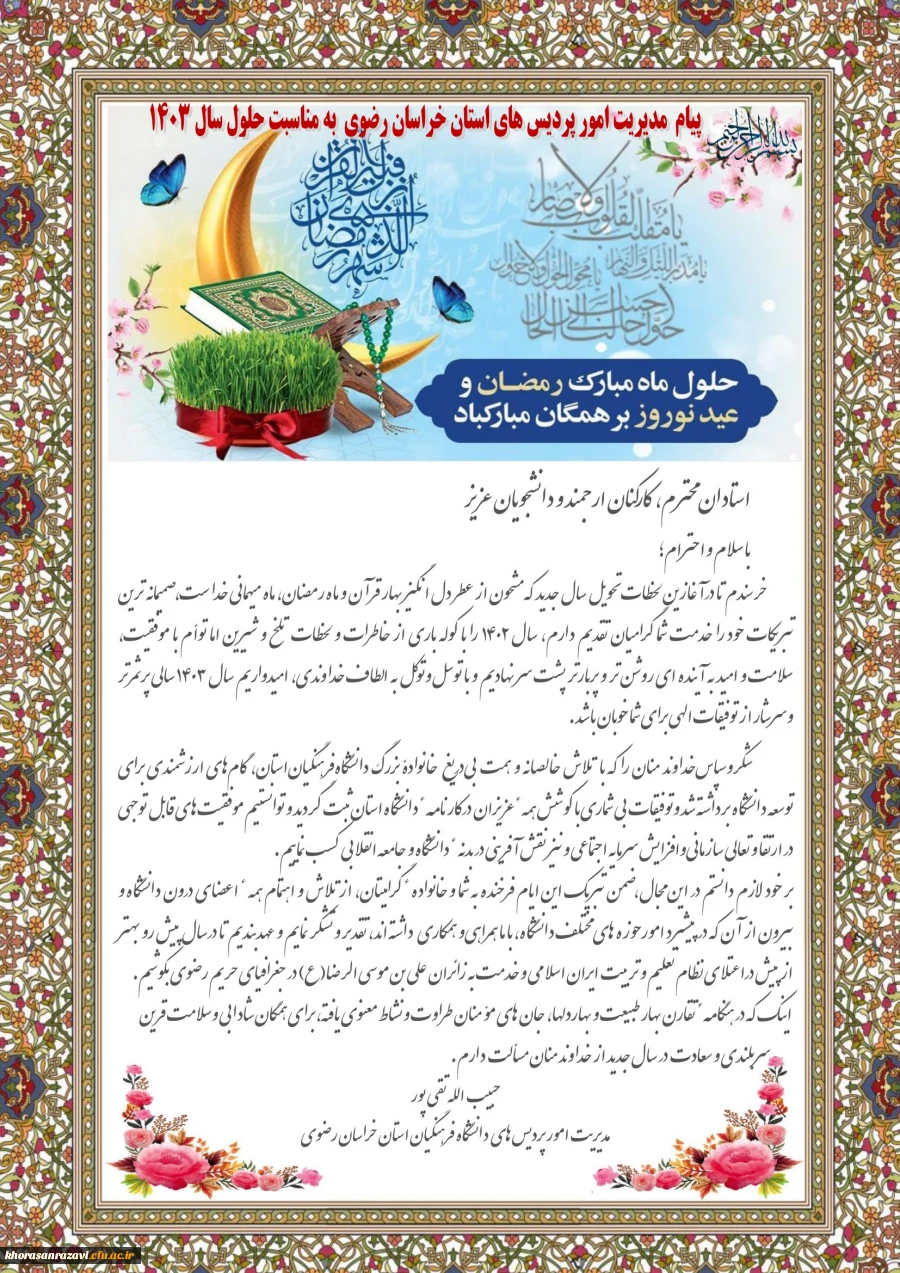 بسم الله الرحمن الرحیم
پیام مدیریت امور پردیس های استان خراسان رضوی به مناسبت حلول سال ۱۴۰۳
شهر رمضان الذی انزل فیه القرآن
یا مقلب القلوب و الابصار
یا مدبر اللیل و النهار
یا محول الحول و الاحوال
حول حالنا الی احسن الحال
حلول ماه مبارک رمضان و
عید نوروز بر همگان مبارکباد
استادان محترم، کارکنان ارجمند و دانشجویان عزیز
با سلام و احترام؛
خرسندم تا در آغازین لحظات تحویل سال جدید که مشحون از عطر دل انگیز بهار قرآن و ماه رمضان، ماه میهمانی خدا است، صمیمانه ترین
تبریکات خود را خدمت شما گرامیان تقدیم دارم، سال ۱۴۰۲ را با کوله باری از خاطرات و لحظات تلخ و شیرین اما توأم با موفقیت،
سلامت و امید به آینده ای روشن تر و پربارتر پشت سر نهادیم و با توسل و توکل به الطاف خداوندی، امیدواریم سال ۱۴۰۳ سالی پرثمرتر
و سرشار از توفیقات الهی برای شما خوبان باشد.
شکر و سپاس خداوند منان را که با تلاش خالصانه و همت بی دریغ خانوادهٔ بزرگ دانشگاه فرهنگیان استان، گام های ارزشمندی برای
توسعه دانشگاه برداشته شد و توفیقات بی شماری با کوشش همهٔ عزیزان در کارنامهٔ دانشگاه استان ثبت گردید و توانستیم موفقیت های قابل توجهی
در ارتقا و تعالی سازمانی و افزایش سرمایه اجتماعی و نیز نقش آفرینی در بدنهٔ دانشگاه و جامعه انقلابی کسب نماییم.
بر خود لازم دانستم در این مجال، ضمن تبریک این ایام فرخنده به شما و خانوادهٔ گرامیتان، از تلاش و اهتمام همهٔ اعضای درون دانشگاه و
بیرون از آن که در پیشبرد امور حوزه های مختلف دانشگاه، با ما همراهی و همکاری داشته اند، تقدیر و تشکر نمایم و عهد بندیم تا در سال پیش رو بهتر
از پیش در اعتلای نظام تعلیم و تربیت ایران اسلامی و خدمت به زائران علی بن موسی الرضا(ع) در جغرافیای حریم رضوی بکوشیم.
اینک که در هنگامهٔ تقارن بهار طبیعت و بهار دلها، جان های مؤمنان طراوت و نشاط معنوی یافته، برای همگان شادابی و سلامت قرین
سربلندی و سعادت در سال جدید از خداوند منان مسألت دارم.
حبیب الله تقی پور
مدیریت امور پردیس های دانشگاه فرهنگیان استان خراسان رضوی
khorasanrazavi.cfu.ac.ir